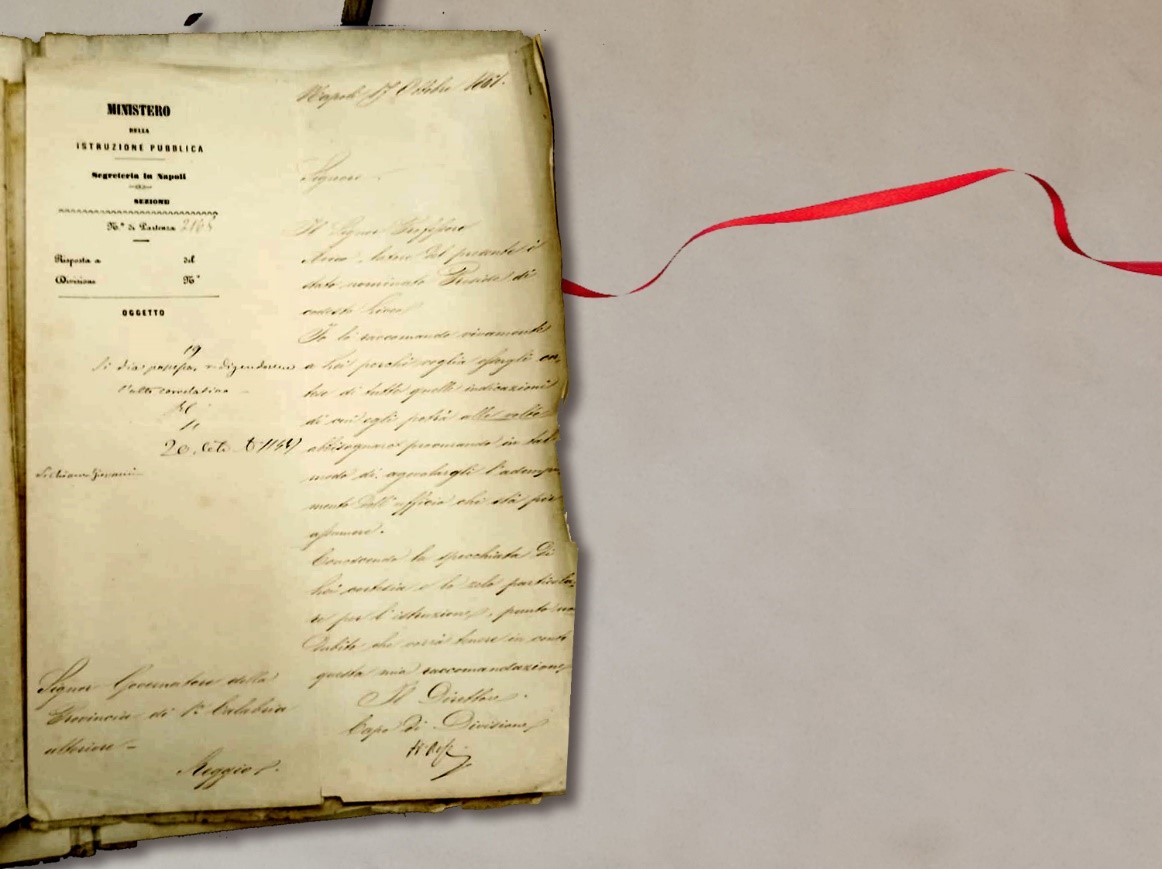 MINISTERO
DELLA
ISTRUZIONE PUBBLICA
Segreteria in Napoli
SEZIONE
N.º di Partenza 2165
Risposta a del
Divisione Nº
OGGETTO
19
Si dia possesso
l'atto correlativo
Signor Governatore della
Provincia di 1ª Calabria
ulteriore
Reggio
Napoli 17 Ottobre 1861.
Signore
Il Signor Professore
latore del presente è
stato nominato Preside di
codesto Liceo
Io lo raccomando vivamente
a Lei perché voglia essergli
di tutte quelle indicazioni
di cui egli potrà alle volte
abbisognare procurando in tal
modo di agevolargli l'adempi
mento dell'ufficio che stà per
assumere.
Conoscendo la specchiata di
Lei cortesia e lo zelo particola
re per l'istruzione, punto non
dubito che vorrà tenere in conto
questa mia raccomandazione
Il Direttore
Capo di Divisione